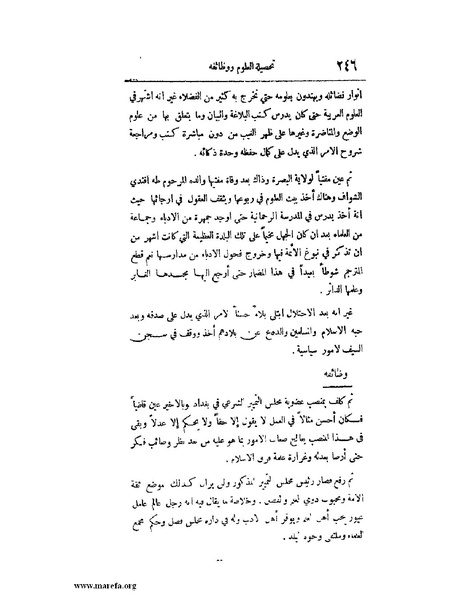 ٢٤٦ تحصيله العلوم ووظائفه
انوار فضائله ويهتدون بعلومه حتى تخرج به كثير من الفضلاء غير انه اشتهر في
العلوم العربية حتى كان يدرس كتب البلاغة والبيان وما يتعلق بها من علوم
الوضع والمناضرة وغيرها على ظهر الغيب من دون مباشرة كتب ومراجعة
شروح الامر الذي يدل على كمال حفظه وحدة ذكائه .
ثم عين مفتياً لولاية البصرة وذلك بعد وفاة مفتيها والده المرحوم طه افندي
الشواف وهناك أخذ يبث العلوم في ربوعها ويثقف العقول في ارجائها حيث
انه أخذ يدرس في المدرسة الرحمانية حتى اوجد جمهرة من الادباء وجماعة
من العلماء بعد ان كان الجهل مخيماً على تلك البلدة العظيمة التي كانت اشهر من
ان تذكر في نبوغ الأئمة فيها وخروج فحول الادباء من مدارسها نعم قطع
المترجم شوطاً بعيداً في هذا المضمار حتى أرجع اليها مجدها الغابر
وعلمها الداثر .
غير انه بعد الاحتلال ابتلى بلاءً حسناً لامر الذي يدل على صدقه وبعد
حبه الاسلام والمسلمين والدفاع عن بلادهم أخذ ووقف في سجن
السيف لامور سياسية .
وظائفه
ثم كلف بمنصب عضوية مجلس التمييز الشرعي في بغداد وبالاخير عين قاضياً
فكان أحسن مثالاً في العمل لا يقول إلا حقاً ولا يحكم إلا عدلاً وبقى
في هذا المنصب يعالج صعاب الامور بما هو عليه من بعد نظر وصائب فكر
حتى أرضا بعدله وغزارة علمه فرق الاسلام .
ثم رفع فصار رئيس مجلس التمييز المذكور ولن يزال كذلك موضع ثقة
الامة ومحبوب ذوي العلم والفضل . وخلاصة ما يقال فيه انه رجل عالم عامل
غيور يحب أهل العلم ويوقر أهل الادب وله في داره مجلس فصل وحكم مجمع
العلماء وملتقى وجوه البلد .
www.marefa.org